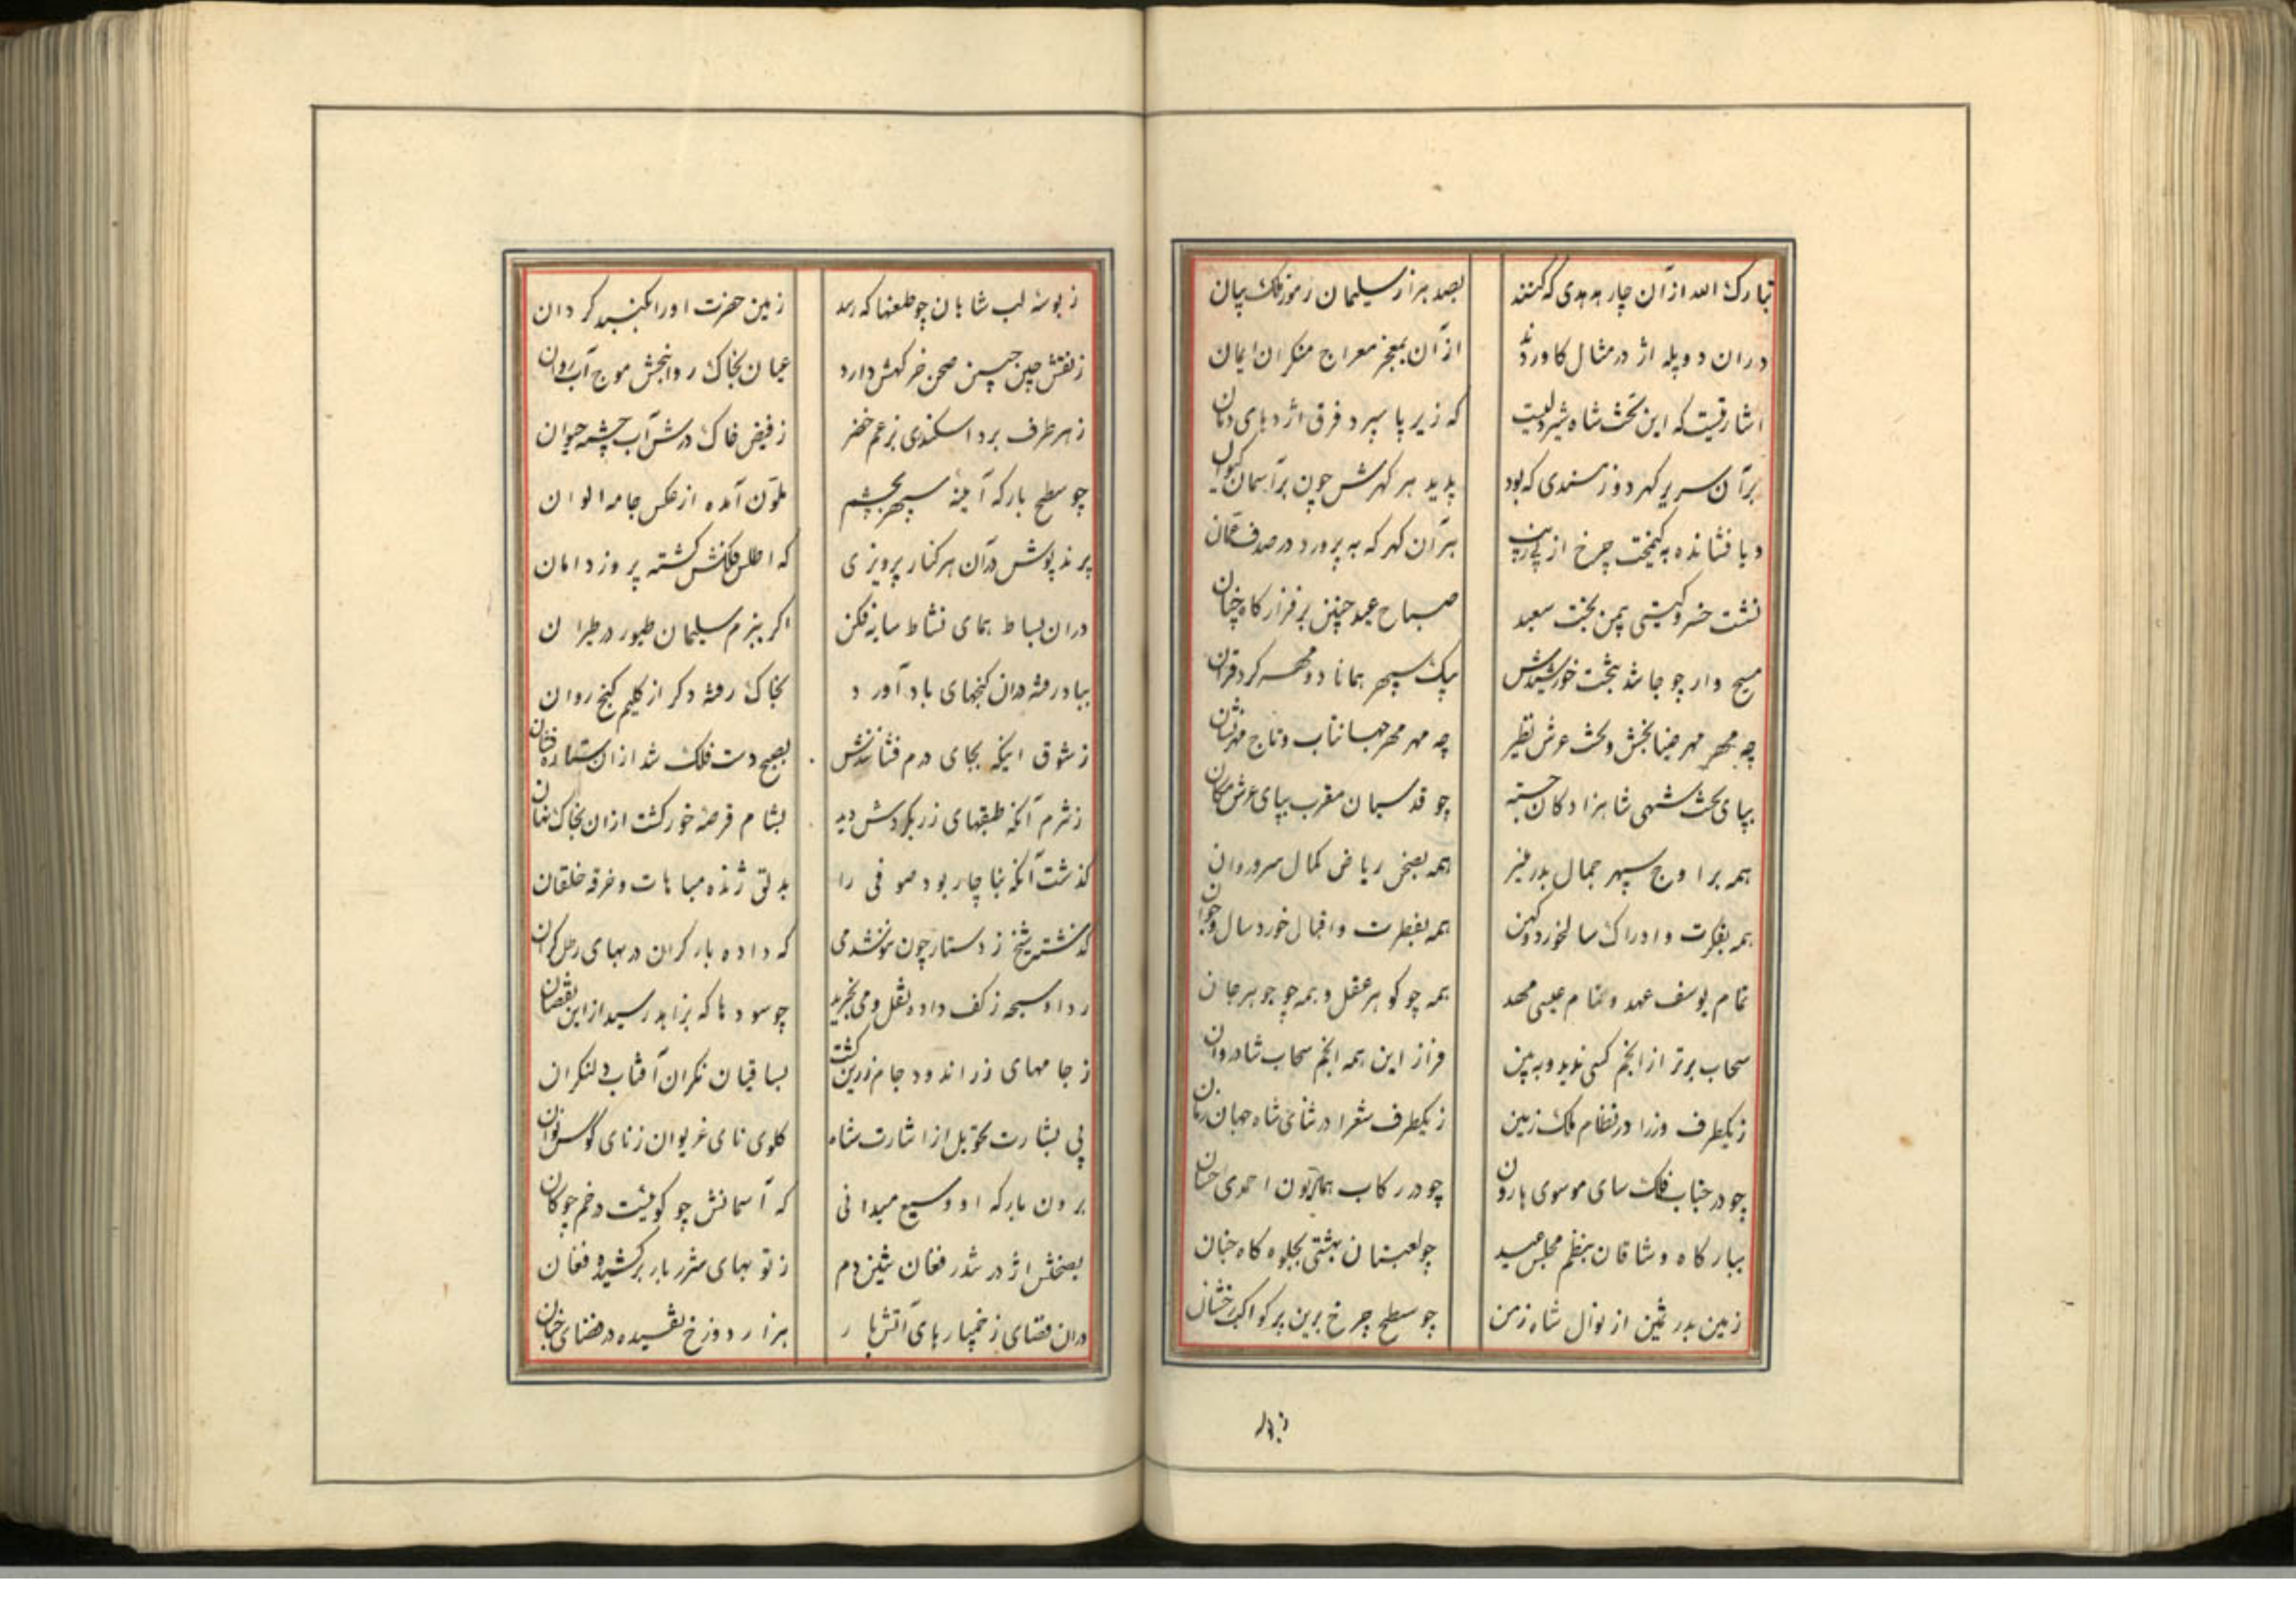 تبارک الله ازآن چار هدهدی که کنند
بصد هزار سلیمان رموز ملک بیان
دران دو پله اژ در مثال کاوردند
ازآن بمعجز معراج منکران ایمان
اشارتیست که این تخت شاه شیردلیست
که زیر پا سپرد فرق اژدهای دمان
برآن سریر کهر دوز مسندی که بود
پدید هر کهرش چون برآسمان کیوان
و یا فشانده به کیمخت چرخ از پی
هرآن کهر که به پرورد در صدف عمان
نشست خسرو کیتی بمن بخت سعید
صباح عید چنین بر فراز کاه چنان
مسیح وار چو جا شد بتخت خورشیدش
بیک سپهر همانا دو مهر کرد قران
چه مهر مهر ضیا بخش و تخت عرش نظیر
چه مهر مهر جهانتاب و تاج مهر نشان
بپای تخت شهی شاهزادکان خجسته
چو قدسیان مقرب بپای عرش مکان
همه براوج سپهر جمال بدر منیر
همه بصحن ریاض کمال سرو روان
همه بفکرت و ادراک سالخورد و کهن
همه بفطرت و اقبال خورد سال و جوان
تمام یوسف عهد و تمام عیسی مهد
همه چو کوهر عقل و همه چو جوهر جان
سحاب برتر از انجم کسی ندید و به بین
فراز این همه انجم سحاب شادروان
زیکطرف وزرا در نظام ملک زمین
زیکطرف شعرا در ثنای شاه جهان
چو در جناب فلک سای موسوی هارون
چو در رکاب همایون احمدی حسان
ببارکاه وشاقان بنظم مجلس عید
چو لعبتان بهشتی بجلوه کاه جنان
زمین بدر ثمین از نوال شاه زمن
چو سطح چرخ برین پر کواکب رخشان
زبوسهٔ لب شاهان چو طعنها که رسد
زمین حضرت او را بکنبد کردان
زنقش چین جبین صحن خرکهش دارد
عیان بخاک روانبخش موج آب روان
زهر طرف برد اسکندری بزعم خضر
زفیض خاک درش آب چشمه حیوان
چو سطح بارکه آینهٔ سپهر بچشم
ملون آمده از عکس جامه الوان
پرندپوش درآن هر کنار پرویزی
که اطلس فلکش کشته پروز دامان
دران بساط همای نشاط سایه فکن
اکر ببزم سلیمان طیور در طیران
بباد رفته دران کنجهای باد آورد
بخاک رفته دکر از کلیم کنج روان
زشوق اینکه بجای درم فشانندش
بصبح دست فلک شد ازان ستاره فشان
زشرم آنکه طبقهای زر بکردش دید
بشام قرصهٔ خور کشت ازان بخاک نهان
کذشت آنکه بناچار بود صوفی را
بدلق ژنده مباهات و خرقه خلقان
کذشت شیخ ز دستار چون
که داده بار کران در بهای رطل کران
ردا و سبحه زکف داده نقل و می بخرید
چو سودها که بزاهد رسید ازاین نقصان
زجامهای زر اندود جام زرین کشت
بساقیان نکران آفتاب
پی بشارت تحویل از اشارت شاه
کلوی نای غریوان زنای کوس نوان
برون بارکه او وسیع میدانی
که آسمانش چو کوئیست در خم چوکان
بصحنش اژدر تندر فغان تنین دم
زتوبهای شرر بار برکشیده فغان
دران فضای زخمپارهای آتش بار
هزار دوزخ تفسیده در فضای جنان
زبوسه